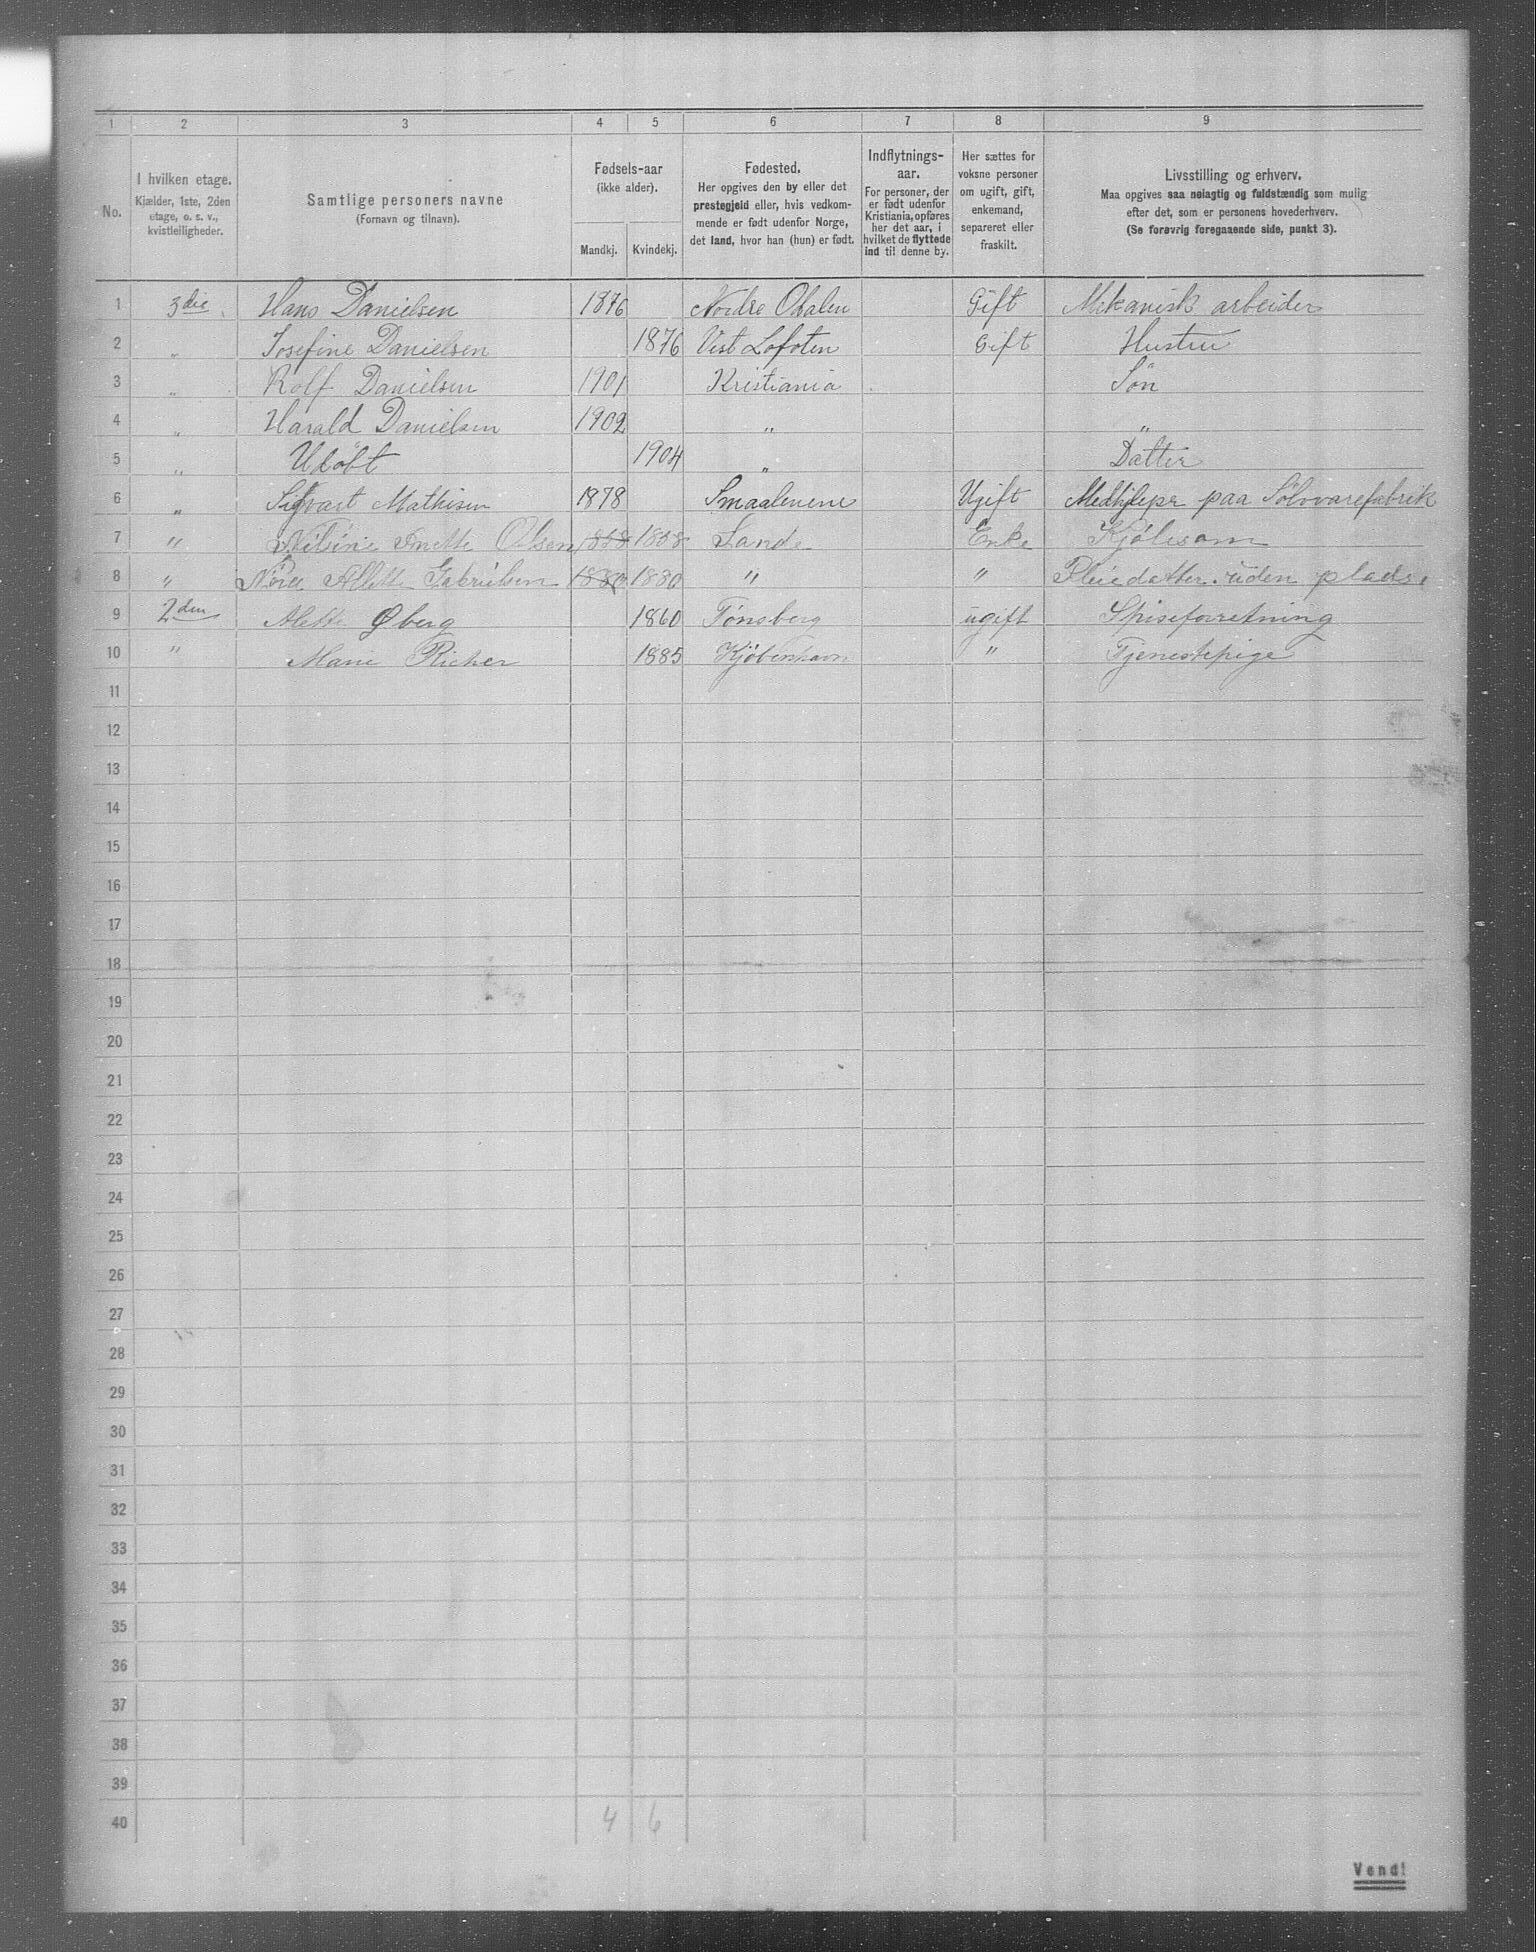 1 2 3 4 5 6 7 8 9
No.
I hvilken etage.
Kjælder, 1ste, 2den
etage, o. s. v.,
kvistleiligheder.
Samtlige personers navne
(Fornavn og tilnavn).
Fødsels-aar
(ikke alder).
Mandkj. Kvindekj.
Fødested.
Her opgives den by eller det
prestegjeld eller, hvis vedkom-
mende er født udenfor Norge,
det land, hvor han (hun) er født.
Indflytnings-
aar.
For personer, der
er født udenfor
Kristiania, opføres
her det aar, i
hvilket de flyttede
ind til denne by.
Her sættes for
voksne personer
om ugift, gift,
enkemand,
separeret eller
fraskilt.
Livsstilling og erhverv.
Maa opgives saa nøiagtig og fuldstændig som mulig
efter det, som er personens hovederhverv.
(Se forøvrig foregaaende side, punkt 3).
1 3die Hans Danielsen 1876 Nordre Odalen Gift Mekanisk arbeider
2 " Josefine Danielsen 1876 Vest Lofoten Gift Hustru
3 " Rolf Danielsen 1901 Kristiania Søn
4 " Harald Danielsen 1902 " "
5 " Udøbt 1904 " Datter
6 " Sigvart Mathisen 1878 Smaalenene Ugift Medhjelper paa Sølvvarefabrik
7 " Anette Olsen 1858 1858 Sande Enke
8 " Alette Gabrielsen 1880 1880 " " Pleiedatter uden plads.
9 2den Alette Øberg 1860 Tønsberg ugift Spiseforretning
10 " Marie Richer 1885 Kjøbenhavn " Tjenestepige
11
12
13
14
15
16
17
18
19
20
21
22
23
24
25
26
27
28
29
30
31
32
33
34
35
36
37
38
39
40 4 6
Vend!